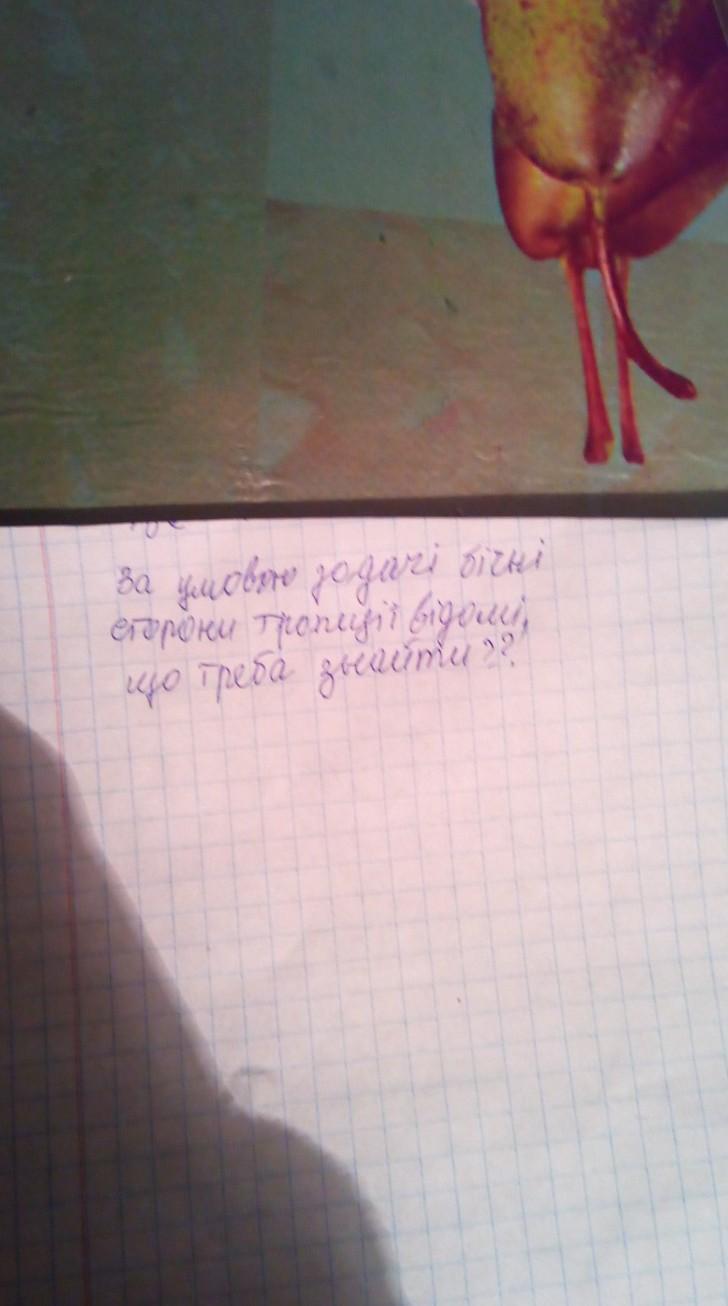 За умовою задачі бічні
сторони трапиції відомі,
що треба знайти??